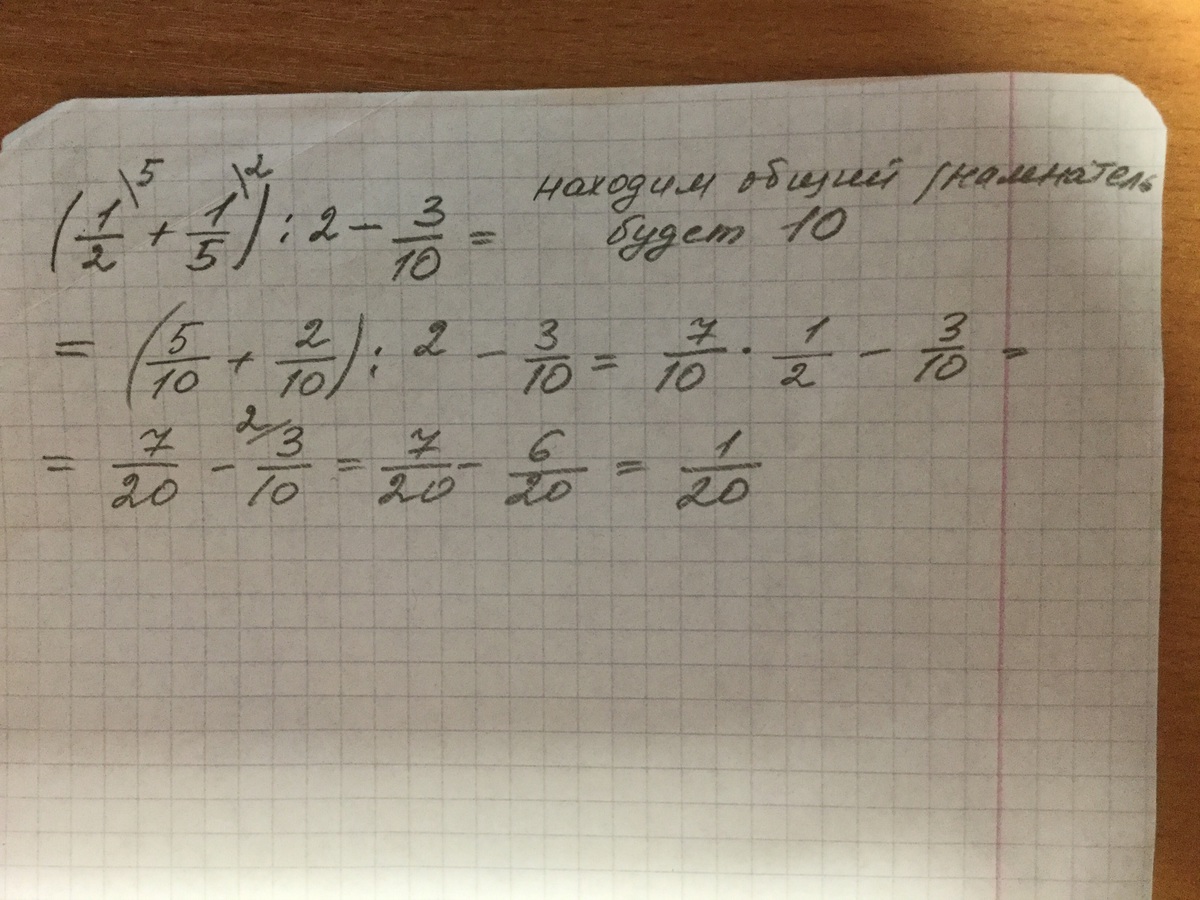 (1/2\5 + 1/5\2) : 2 - 3/10 = находим общий знаменатель
будет 10
= (5/10 + 2/10) : 2 - 3/10 = 7/10 · 1/2 - 3/10 =
= 7/20 - 2/ 3/10 = 7/20 - 6/20 = 1/20